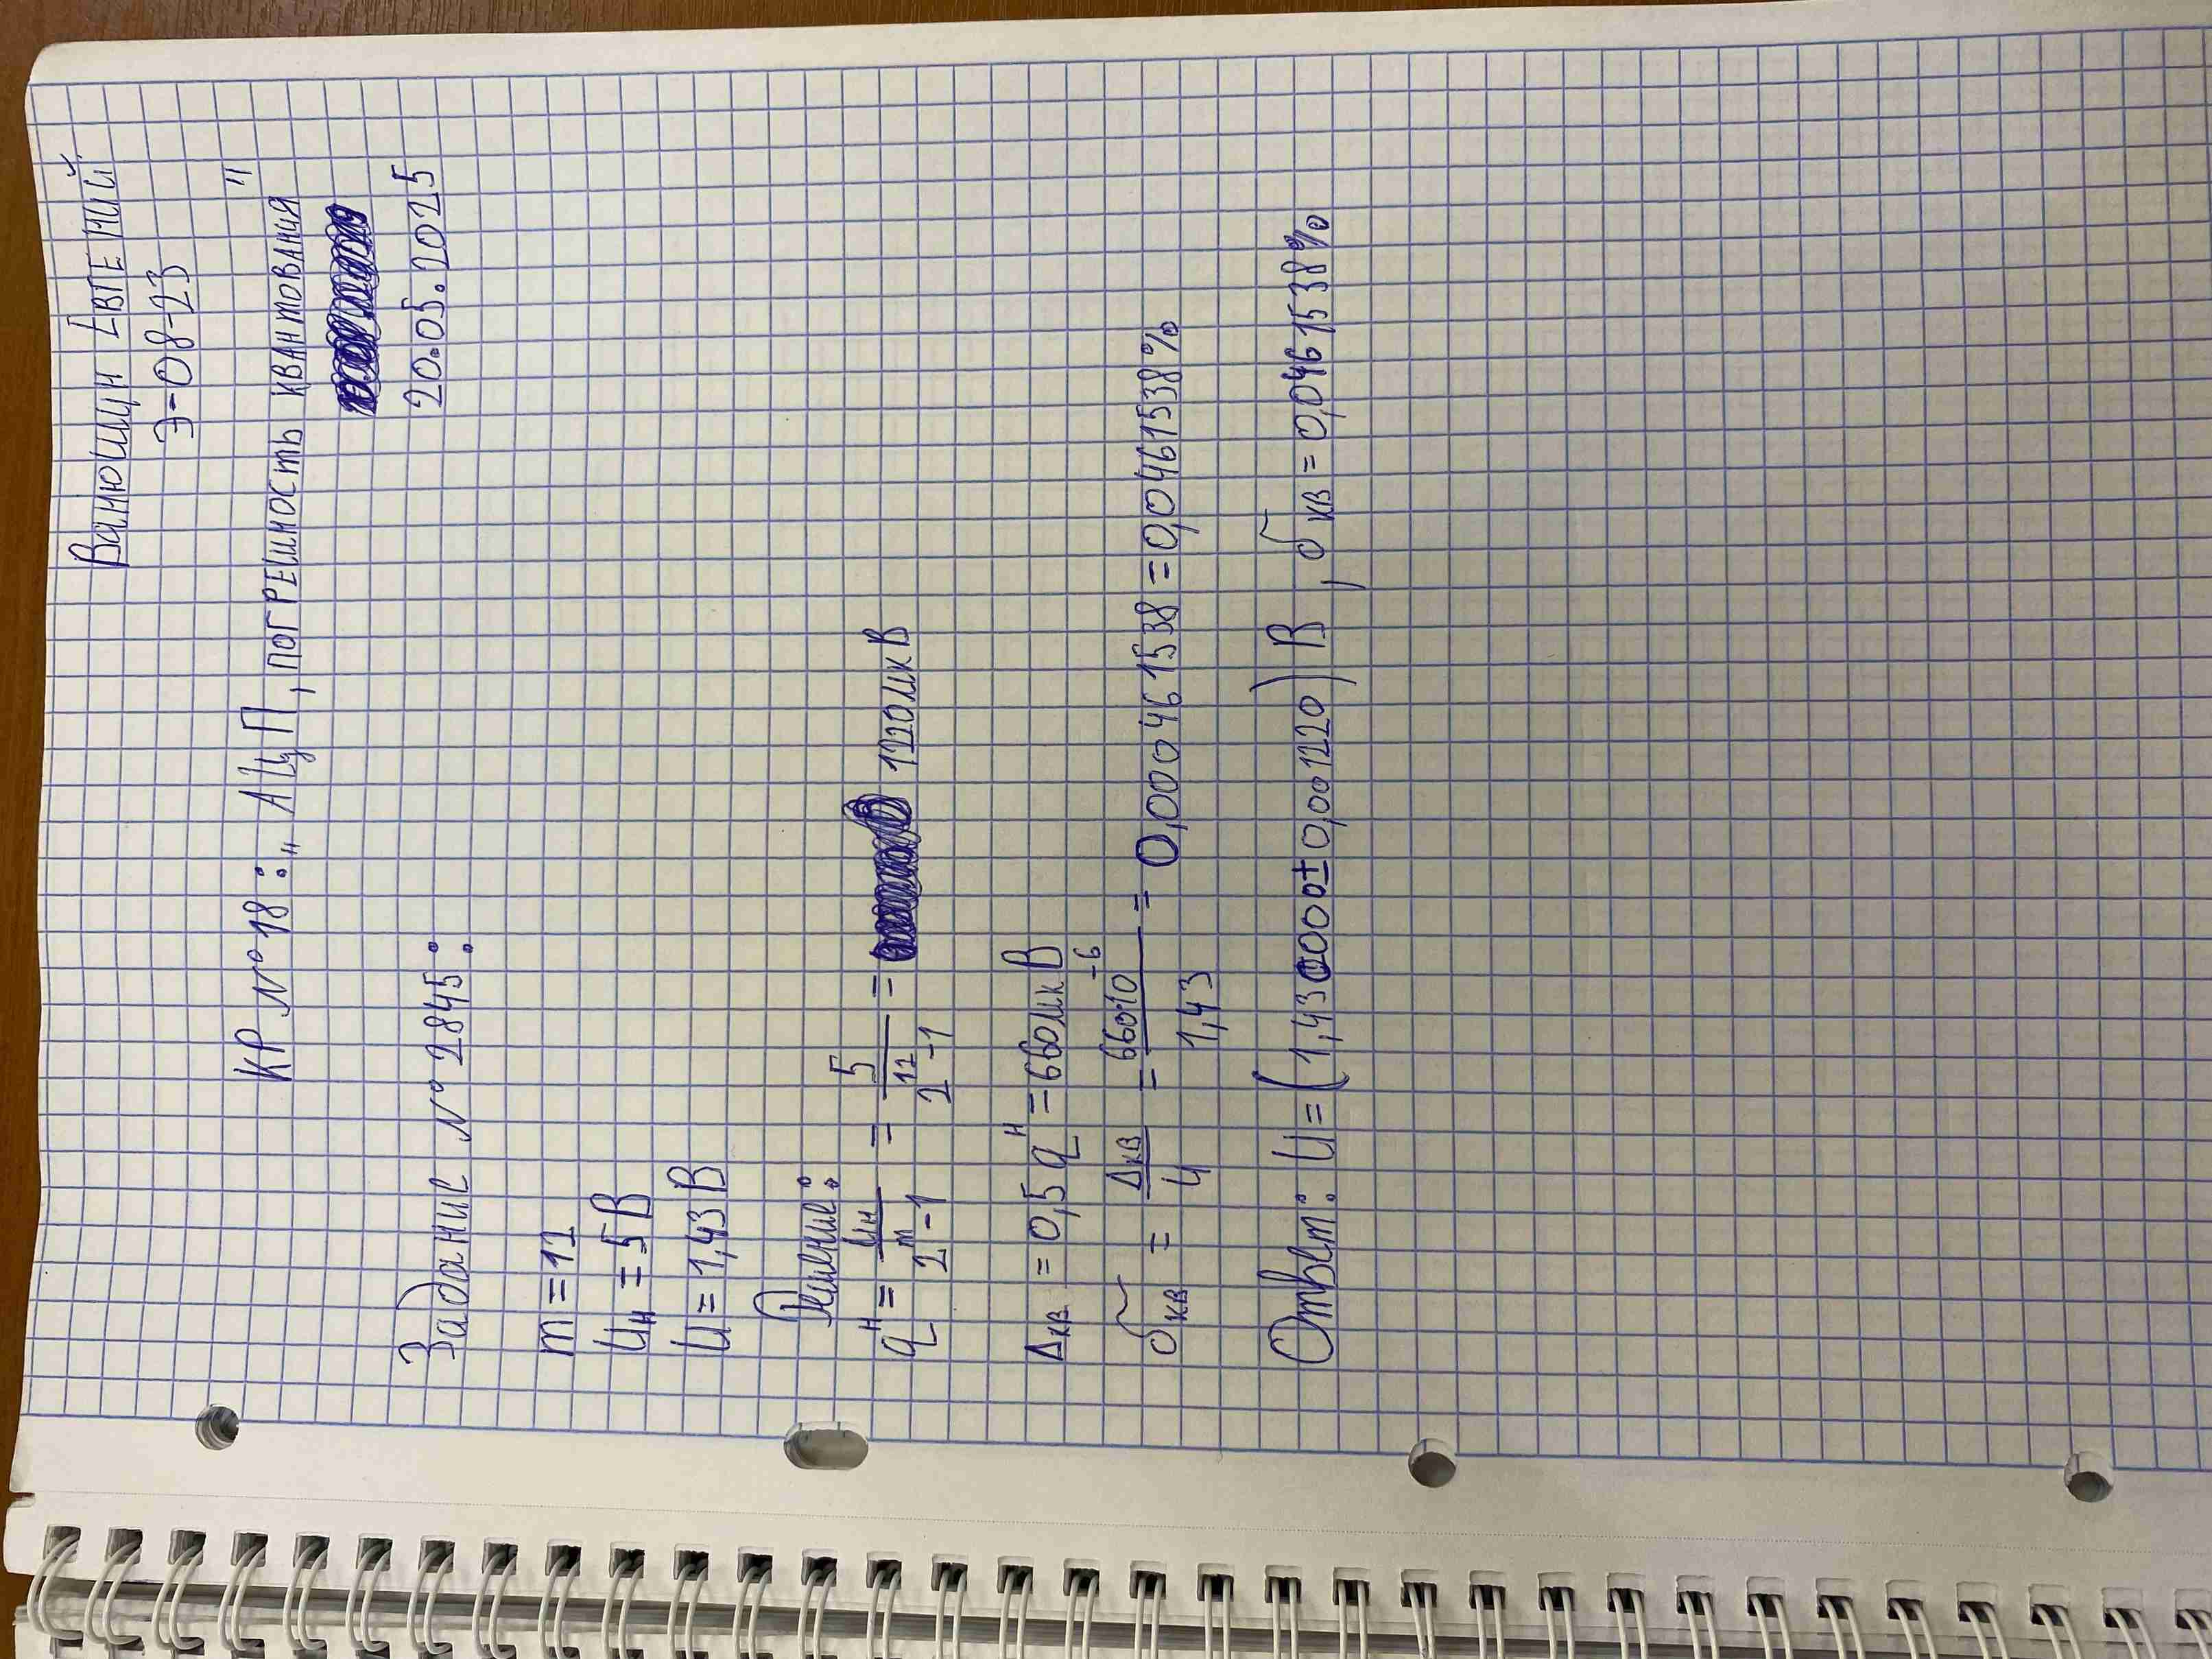 Ванюшин Евгений
Э-08-23
КР №18: „АЦП, погрешность квантования"
20.05.2025
Задание №2845:
m = 12
Uн = 5 В
U = 1,43 В
Решение:
qн = Uн / (2^m - 1) = 5 / (2^12 - 1) = 1220 мкВ
Δкв = 0,5 qн = 660 мкВ
δкв = Δкв / U = 660·10^-6 / 1,43 = 0,00046 1538 = 0,04615 1538%
Ответ: U = (1,430000 ± 0,001220) В, δкв = 0,04615 1538%